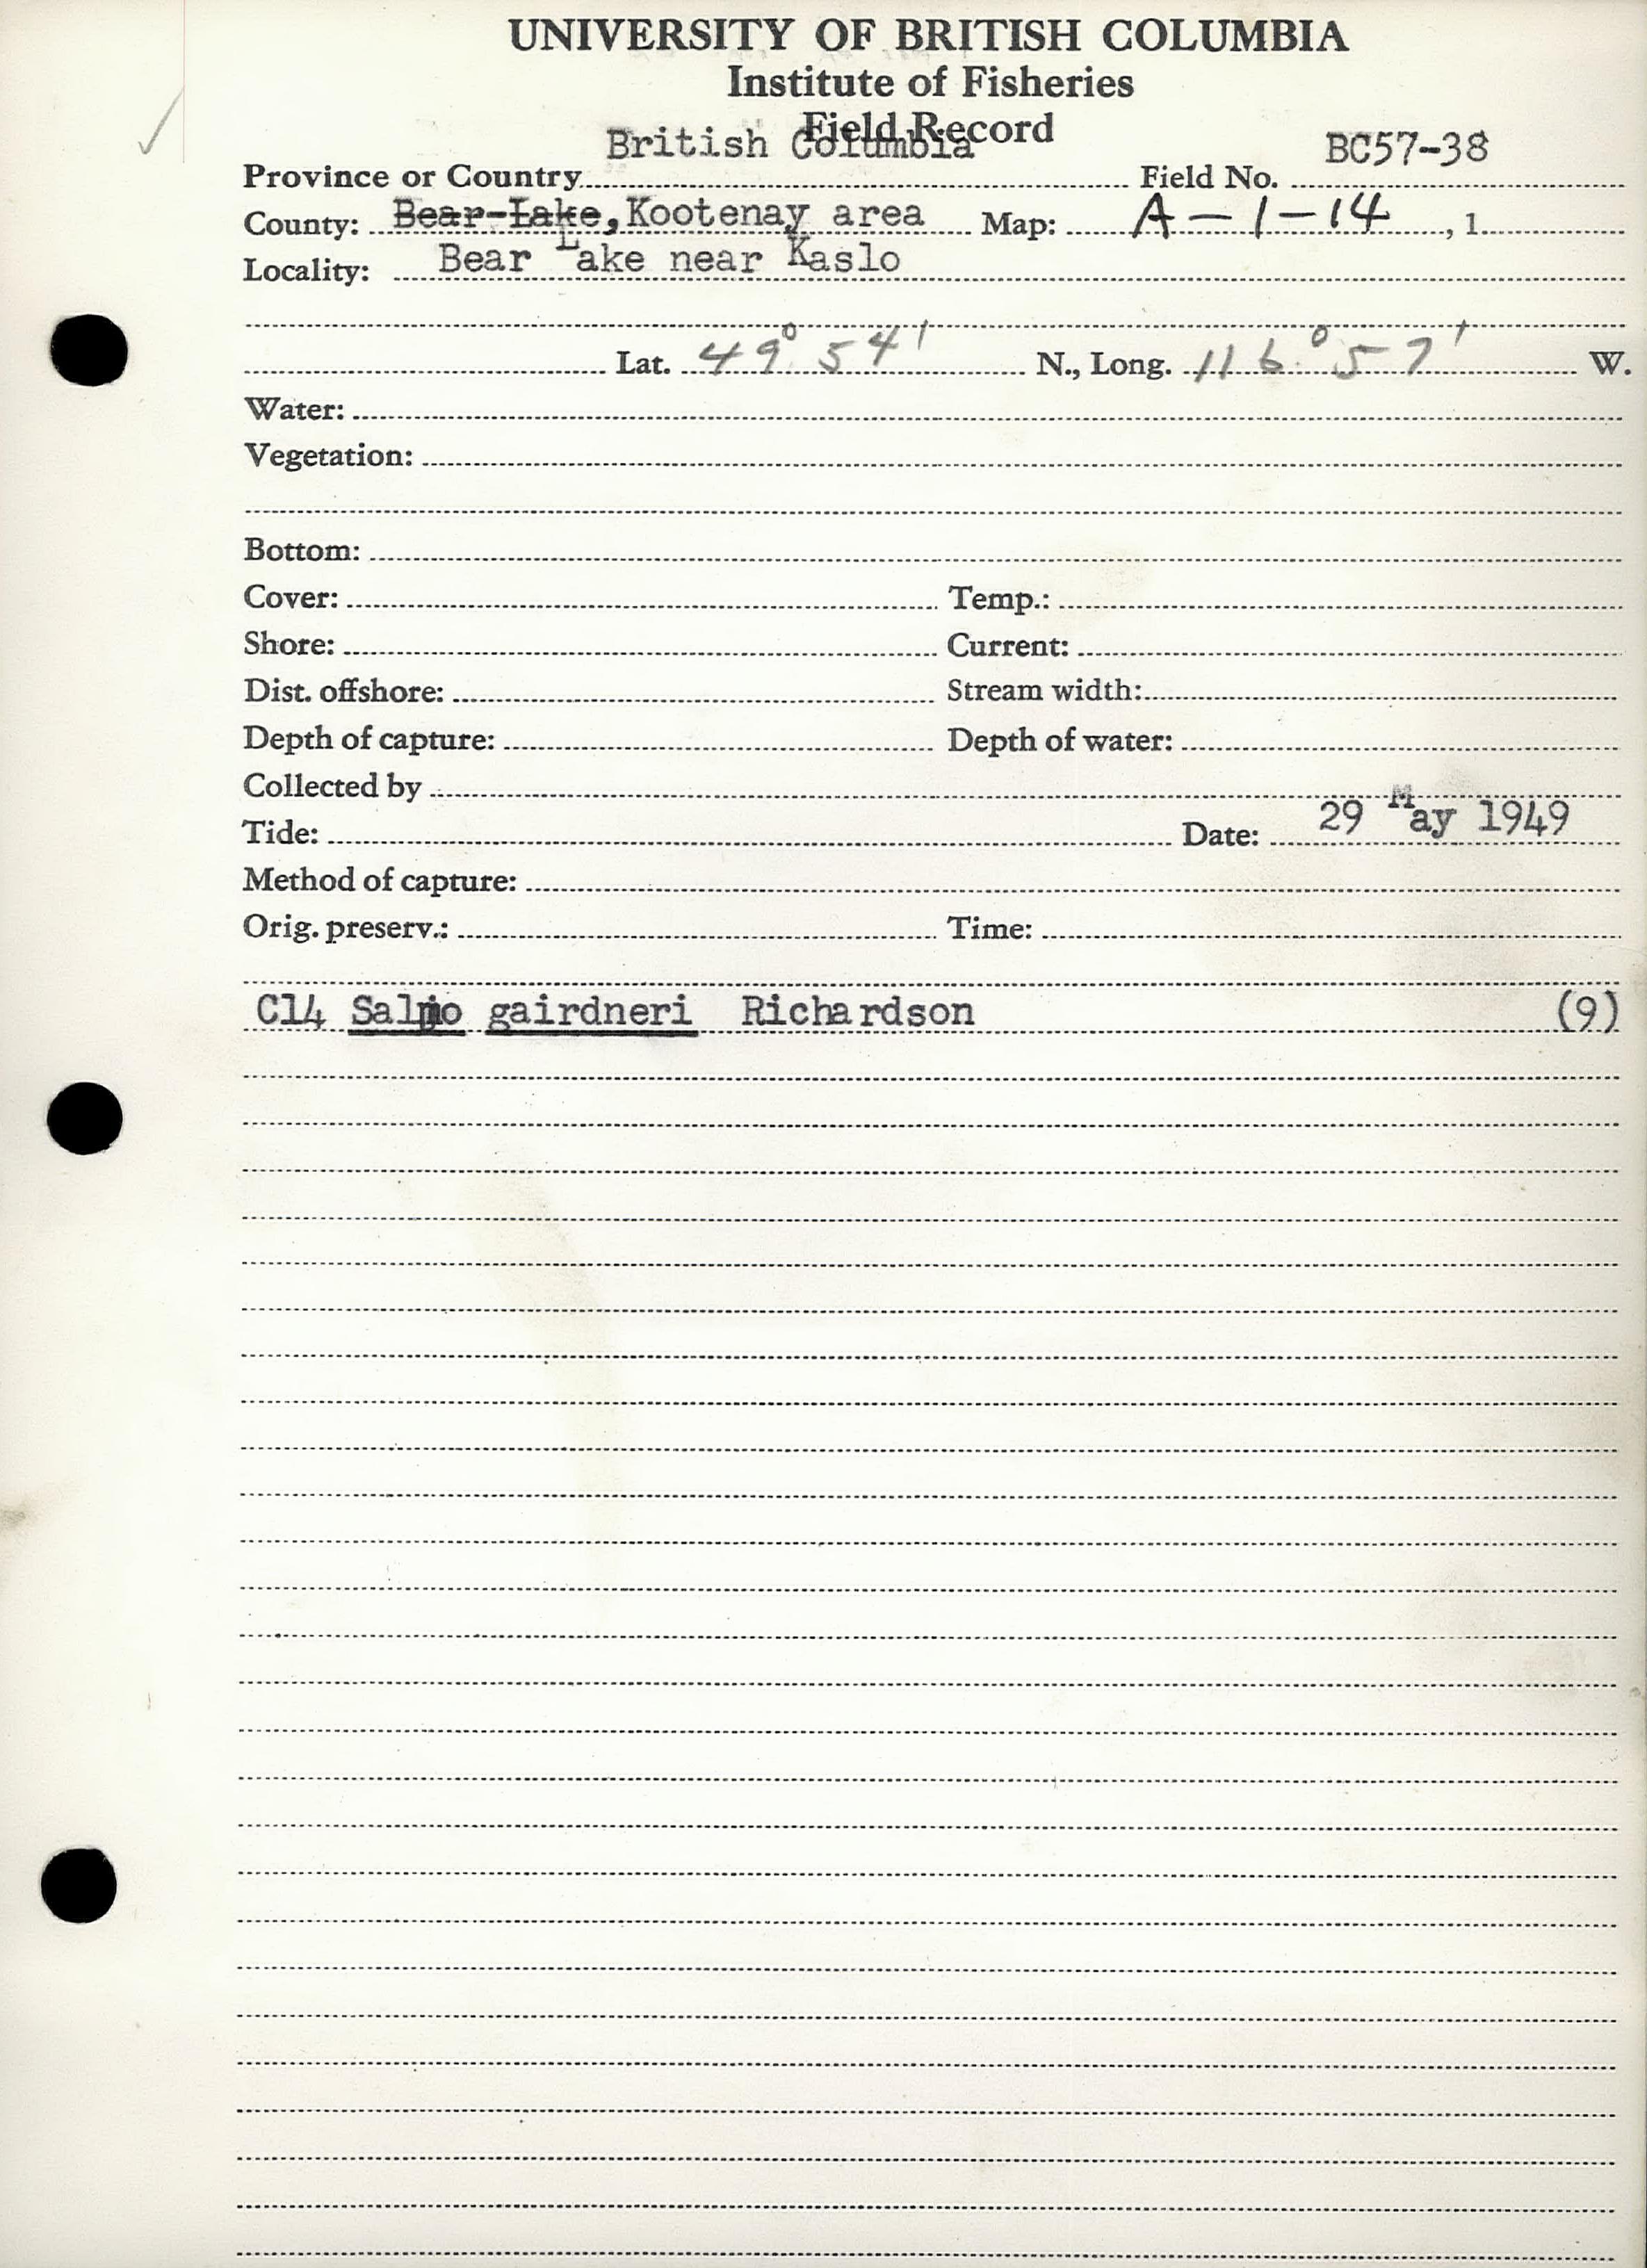 UNIVERSITY OF BRITISH COLUMBIA
Institute of Fisheries
Field Record
Province or Country British Columbia Field No. BC57-38
County: Bear Lake, Kootenay area Map: A-1-14, 1.
Locality: Bear Lake near Kaslo
Lat. 49° 54' N., Long. 116° 57' W.
Water:
Vegetation:
Bottom:
Cover: Temp.:
Shore: Current:
Dist. offshore: Stream width:
Depth of capture: Depth of water:
Collected by
Tide: Date: 29 May 1949
Method of capture:
Orig. preserv.: Time:
C14 Salmo gairdneri Richardson (9)